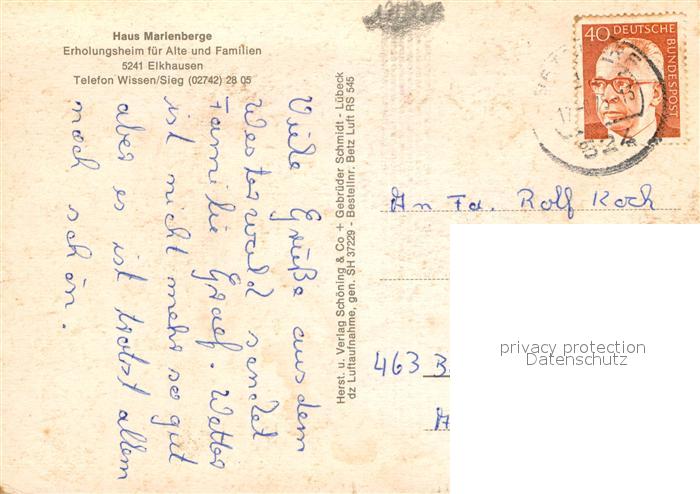 Haus Marienberge
Erholungsheim für Alte und Familien
5241 Elkhausen
Telefon Wissen/Sieg (02742) 28 05
Viele Grüße aus dem
Westerwald sendet
Familie Graef. Wetter
ist nicht mehr so gut
aber es ist trotzt allem
noch schön.
Herst. u. Verlag Schöning & Co + Gebrüder Schmidt - Lübeck
dz Luftaufnahme, gen. SH 37229 - Bestellnr. Betz Luft RS 545
40 DEUTSCHE
BUNDESPOST
An Fa. Rolf Koch
463 B
privacy protection
Datenschutz